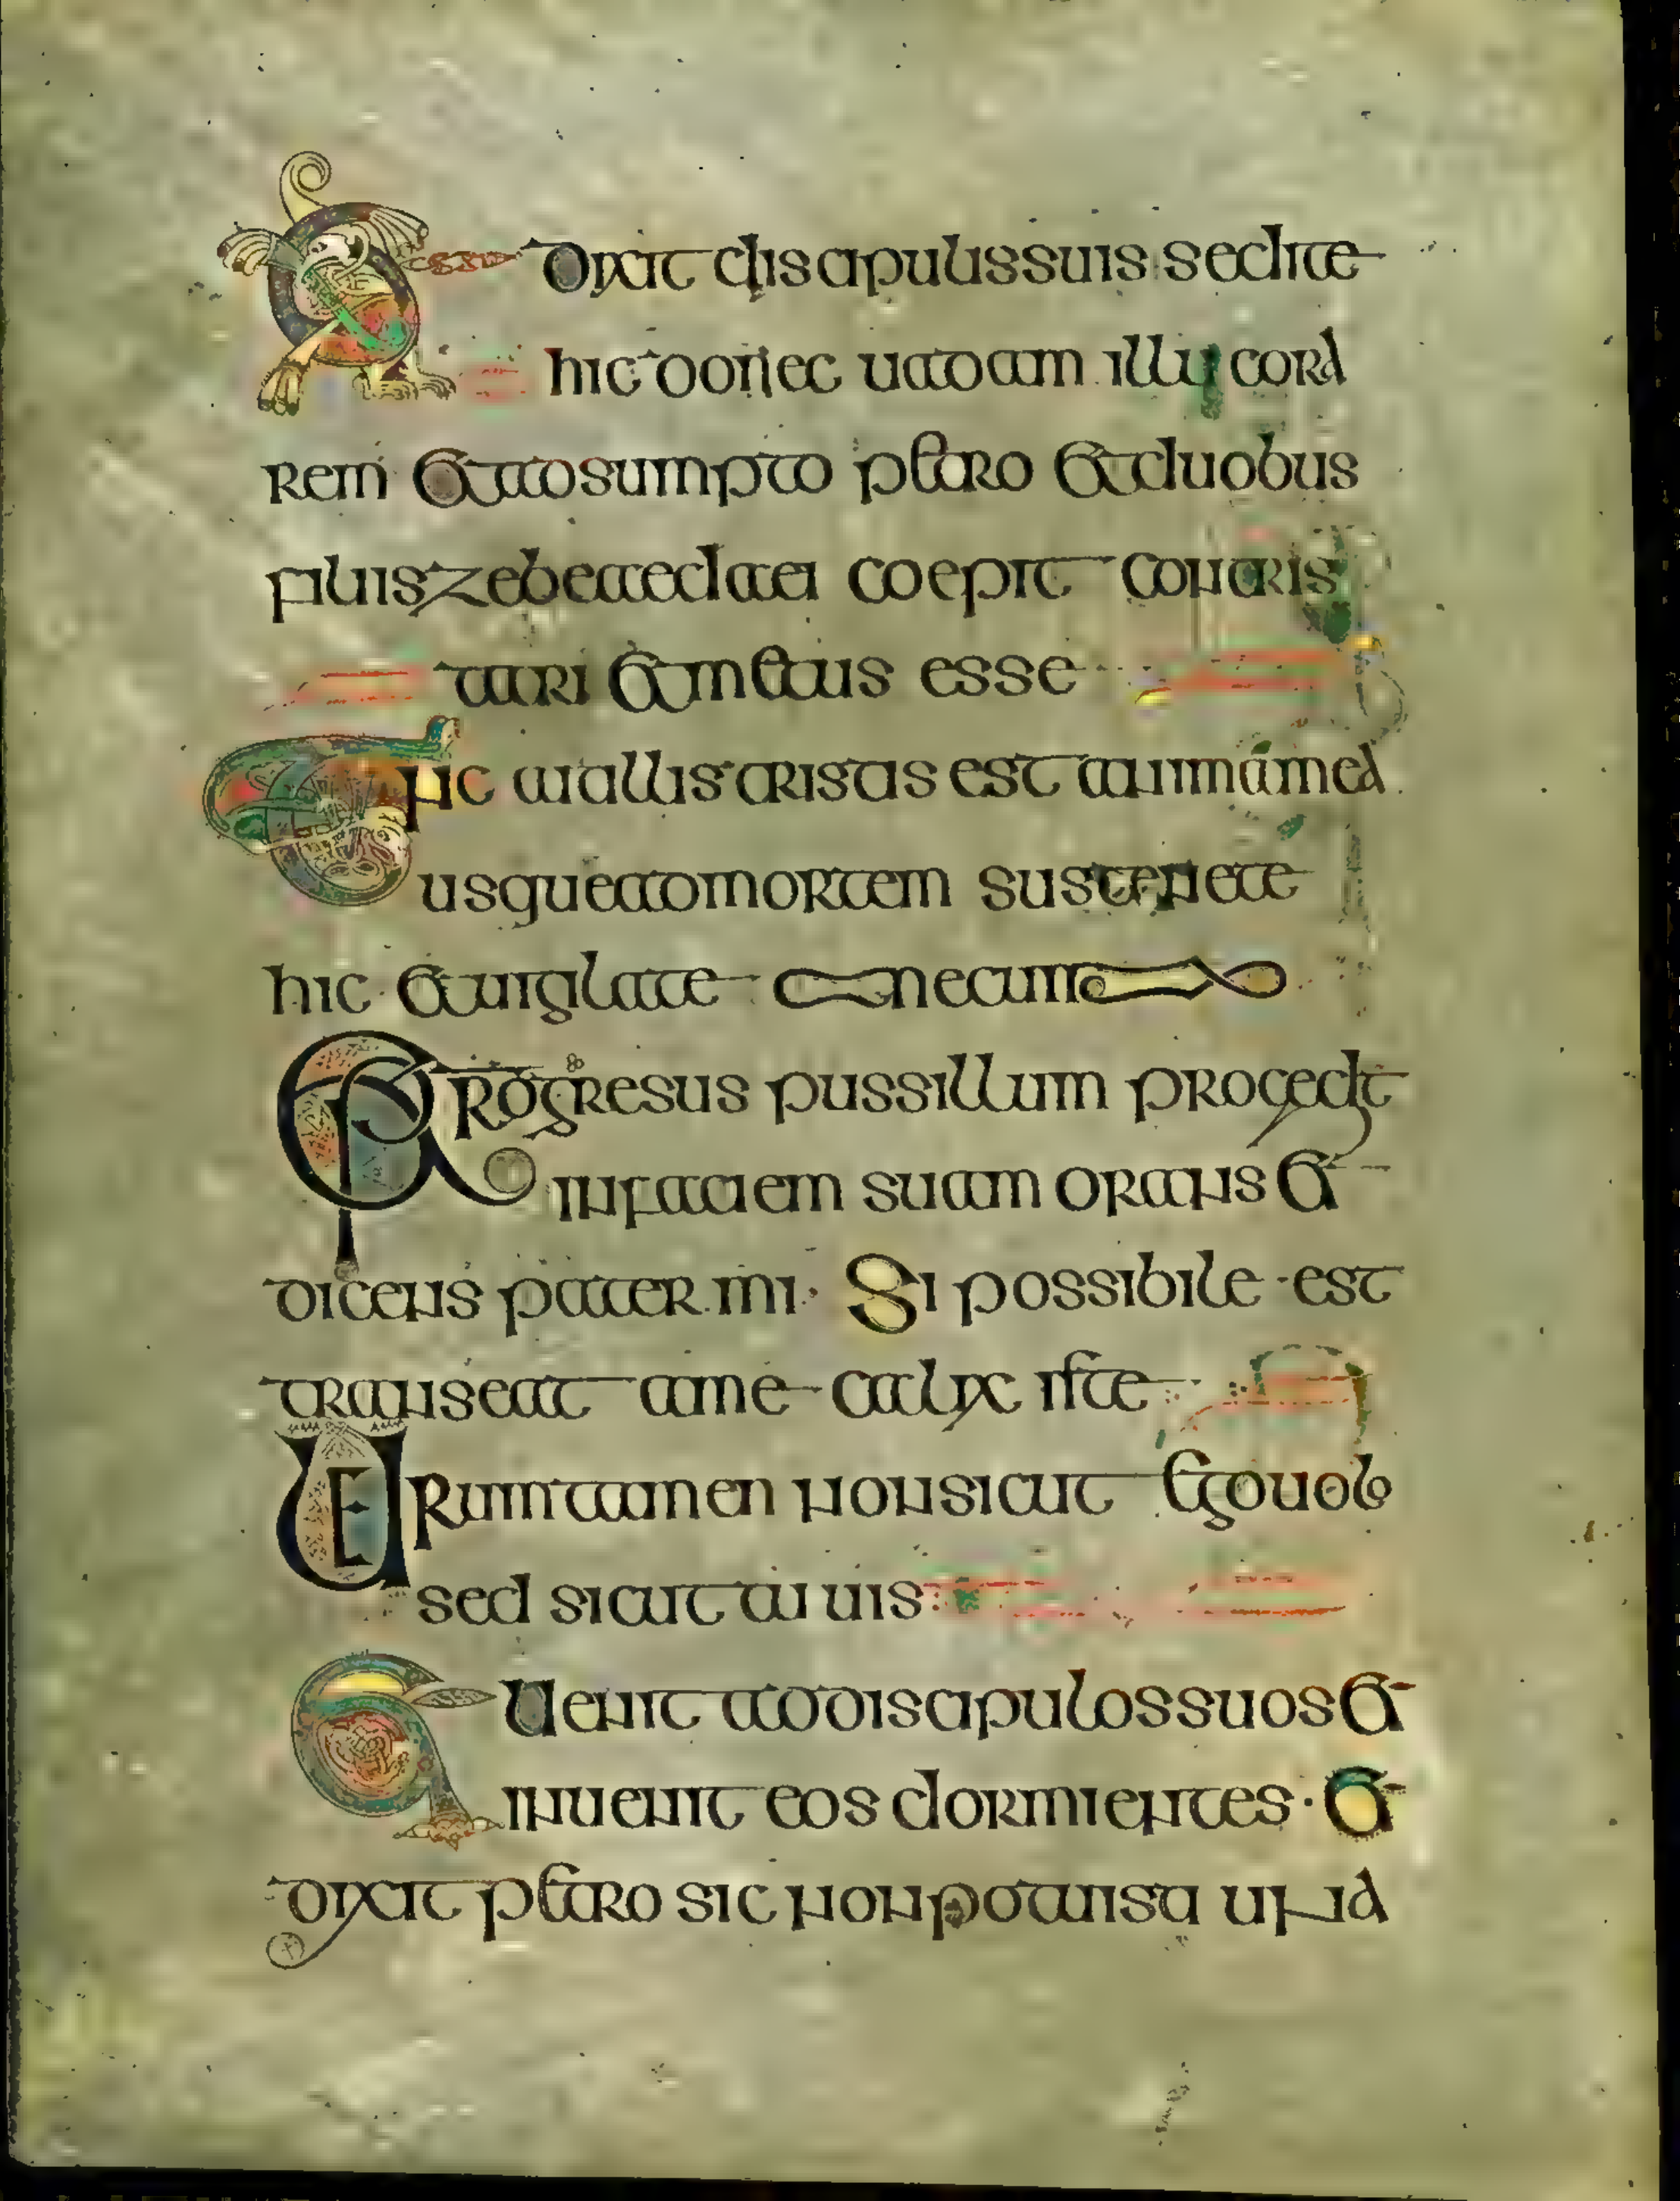 Et dixit discipulis suis sedite
hic donec uadam illuc ora
rem et adsumpto petro et duobus
filiis zebeaedaei coepit contris
tari et metus esse
Tunc ait illis tristis est anima mea
usque ad mortem sustenete
hic et uiglate mecum
Et progresus pussillum procedit
in faciem suam orans et
dicens pater mi · Si possibile est
transeat a me calix iste
Uerumtamen non sicut ego uolo
sed sicut tu uis
Et Uenit ad discipulos suos et
inuenit eos dormientes · et
dixit petro sic non potuistis una